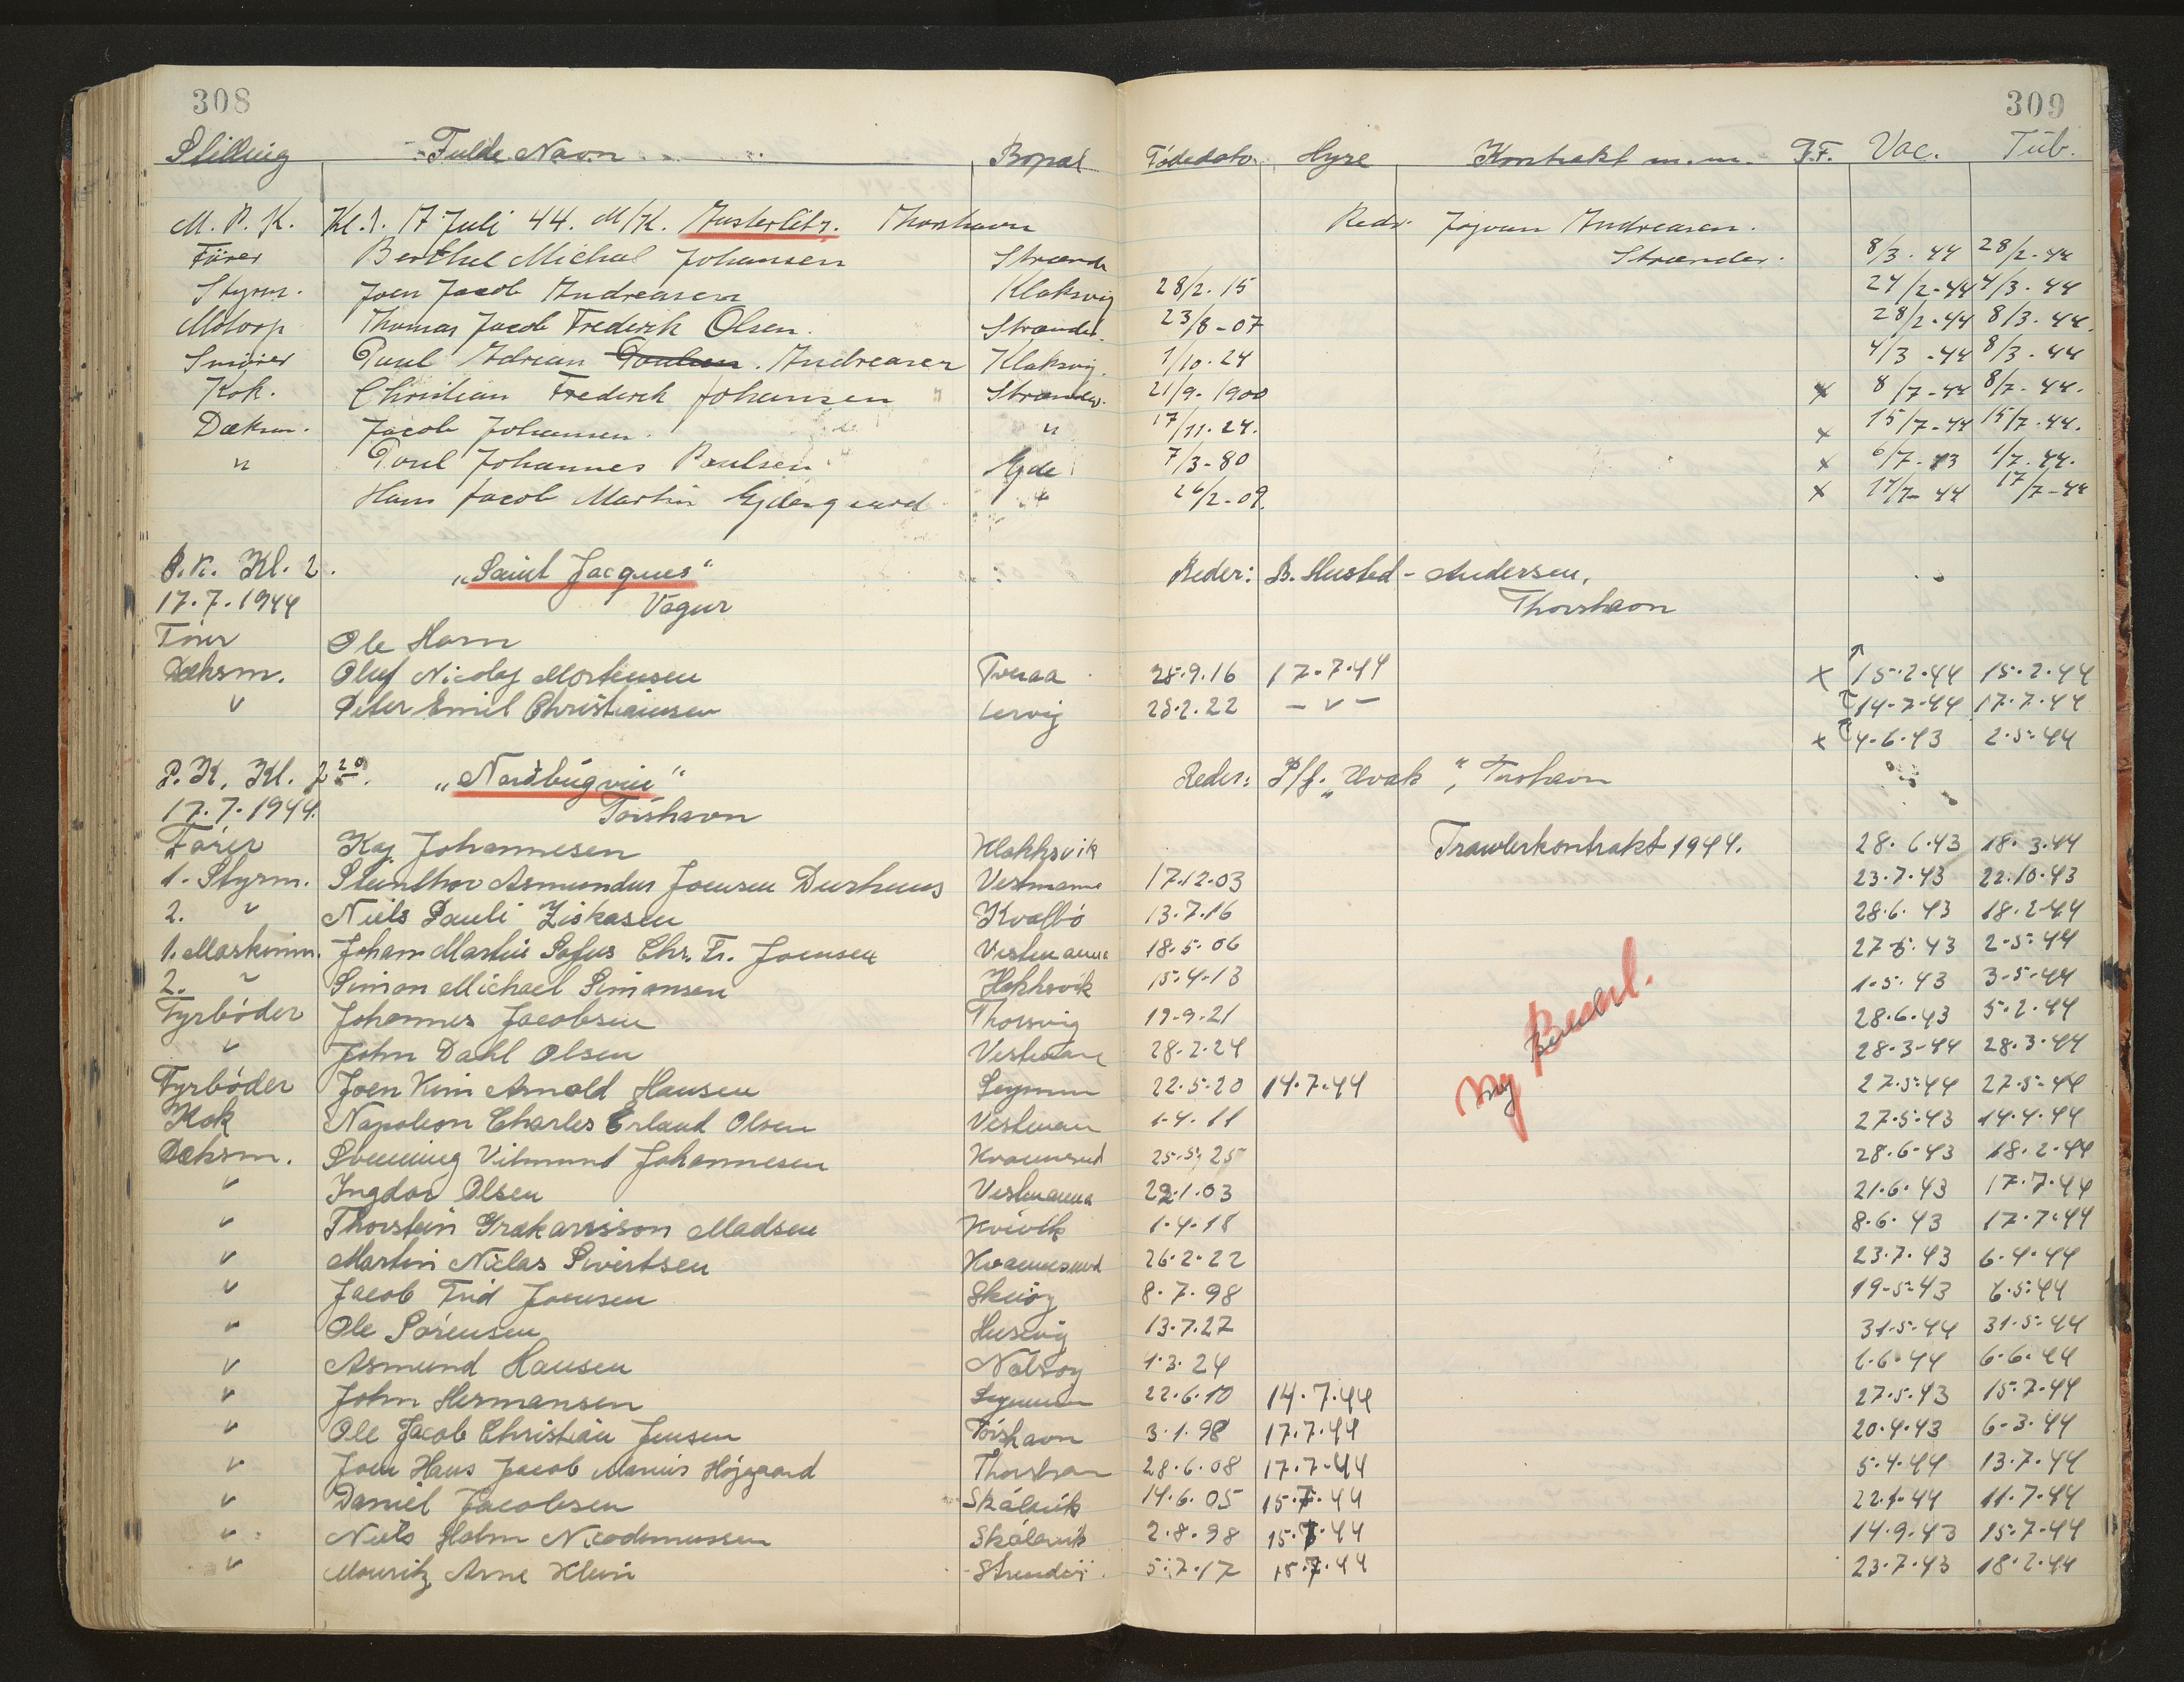 308
309
Stilling Fulde Navn Bopæl Fødedato Hyre Kontrakt m.m. F.F. Vac. Tub.
M. P. K. Kl. 1. 17 Juli 44. M/K. Thorshavn Reder Jógvan Andreasen.
Fører Berthel Michal Johansen Strænde Strænder. 8/3. 44 28/2. 44
Styrm. Joen Jacob Andreasen Klaksvig 28/2. 15 24/2-44 4/3. 44
Motorp Thomas Jacob Frederik Olsen. Strænder. 23/8-07 28/2-44 8/3. 44.
Smører Poul Adrian Poulsen. Andreasen Klaksvig. 1/10. 24 4/3-44 8/3. 44
Kok. Christian Frederik Johansen Strænder. 21/9. 1900 x 8/7-44 8/7. 44.
Dæksm. Jacob Johansen. " 17/11. 24. x 15/7-44 15/7. 44.
" Poul Johannes Poulsen Ejde 7/3-80 x 6/7-43 1/7. 44.
Hans Jacob Martin Ejdesgaard " 26/2-09. x 17/7-44 17/7-44
P.K. Kl. 2. „Saint Jacques" Reder: B. Husted-Andersen,
17.7.1944 Vágur Thorshavn
Fører Ole Horn
Dæksm. Oluf Nicolaj Mortensen Tveraa 28.9.16 17.7.44 x 15.2.44 15.2.44
v Peter Emil Christiansen Lervig 28.2.22 -v- 14-7-44 17.7.44
x 4-6-43 2.5.44
P.K. Kl. 2 20. „Nordbúgvin" Reder: P/f. „Uvak", Torshavn
17.7.1944. Tórshavn
Fører Kaj Johannesen Klakksvik Trawlerkontrakt 1944. 28.6.43 18.3.44
1. Styrm. Steinthor Asmundur Joensen Durhuus Vestmanna 17.12.03 23.7.43 22.10.43
2. v Niels Pauli Ziskasen Kvalbø 13.7.16 28.6.43 18.2-44
1. Maskinm. Johan Martin Sofus Chr. Fr. Joensen Vestmanna 18.5.06 27-5.43 2-5.44
2. v Simon Michael Simonsen Klakksvik 15-4-13 1-5.43 3-5-44
Fyrbøder Johannes Jacobsen Thorsvig 19-9-21 28.6.43 5.2.44
v John Dahl Olsen Vestman 28-2-24 28-3-44 28.3.44
Fyrbøder Joen Kim Arnold Hansen 22.5.20 14.7.44 Ny Bemand. 27.5.44 27.5-44
Kok Napoleon Charles Erland Olsen Vestman 1-4.11 27.5.43 14.4.44
Dæksm. Svenning Vilmund Johannesen Kvannesund 25-5.25 28.6-43 18.2.44
v Ingdor Olsen Vestmanna 22.1.03 21.6.43 17.7.44
v Thorstein Grækarisson Madsen Kvívik 1-4-18 8.6.43 17.7.44
v Martin Niclas Sivertsen Kvannesund 26.2.22 23.7.43 6.4.44
v Jacob Frid Joensen Skuøy 8.7.98 19-5-43 6.5.44
v Ole Sørensen Husevig 13.7.27 31.5.44 31.5.44
v Asmund Hansen Nolsoy 1.3.24 6.6.44 6.6.44
v John Hermansen 22.6.10 14.7.44 27.5.43 15.7.44
v Ole Jacob Christian Jensen Tórshavn 3.1.98 17.7.44 20.4.43 6-3.44
v Joen Hans Jacob Marius Højgaard Thorshavn 28.6.08 17.7.44 5.4.44 13.7.44
v Daniel Jacobsen Skálavík 14.6.05 15.7.44 22.1.44 11.7.44
v Niels Holm Nicodemussen Skálavík 2.8.98 15.7.44 14.9.43 15.7.44
v Mouritz Arne Klein 5.7.17 15.7.44 23.7.43 18.2.44